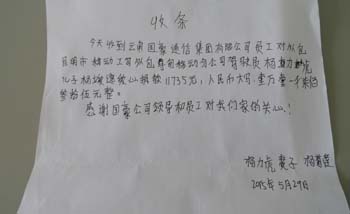 收条
今天收到云南国豪通信集团有限公司员工对外包
昆明市移动工司外包寻甸移动分公司驾驶员杨力虎
儿子杨 爱心捐款11735元,人民币大写:壹万壹一仟柒佰
叁拾伍元整。
感谢国豪公司领导和员工对我们家的关心!
杨力虎 妻子 杨
2015年5月29日